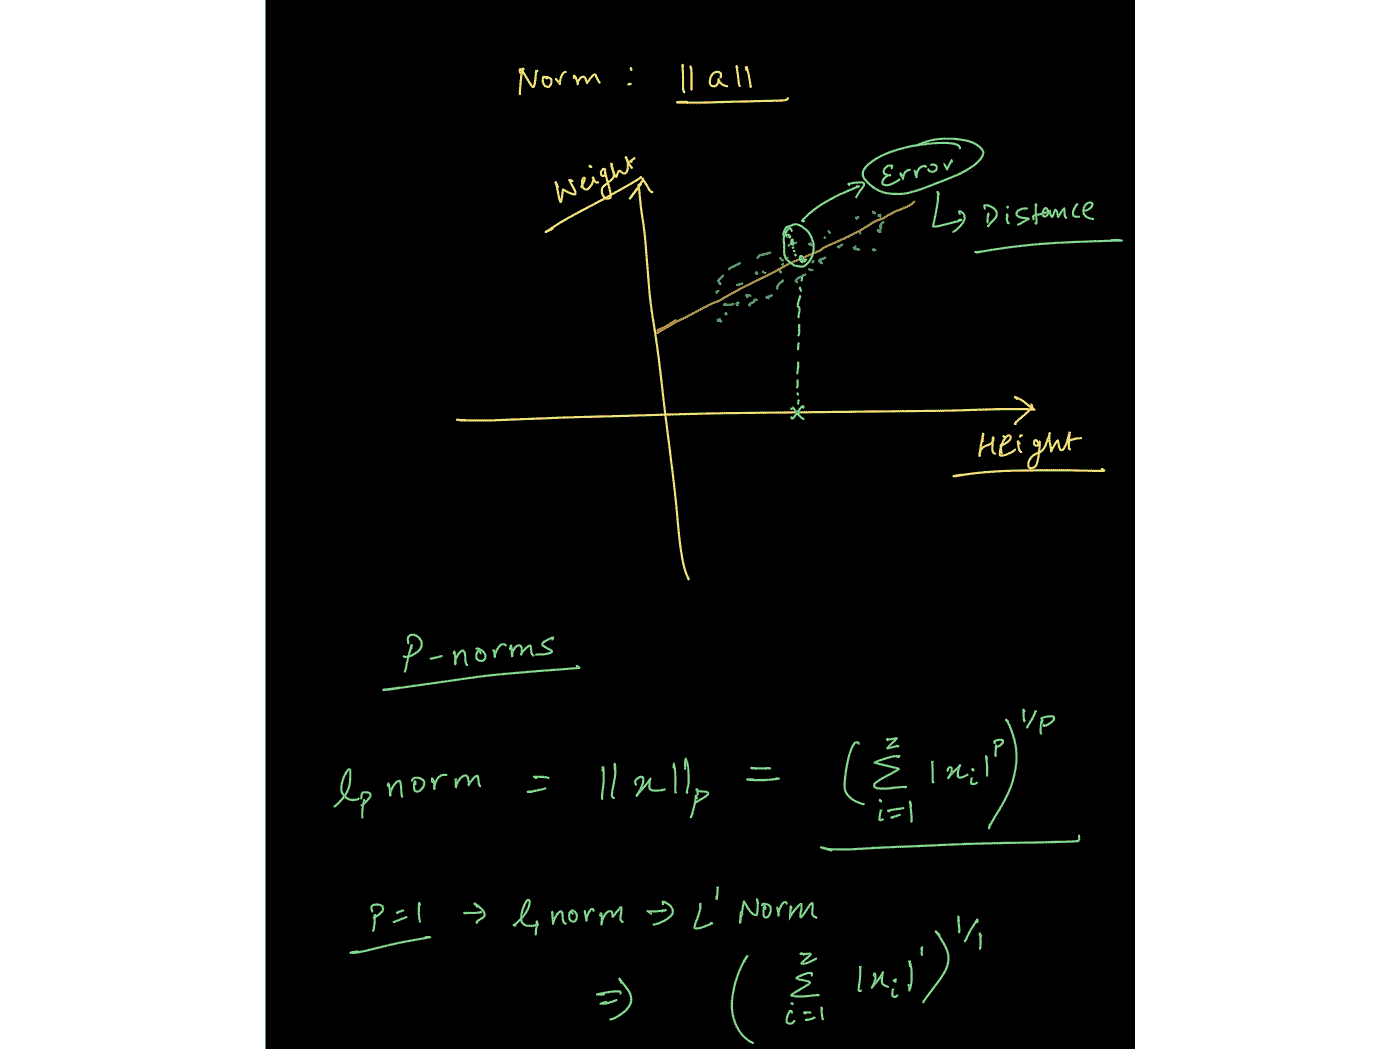 Norm : ||a||
Weight
Error
Distance
Height
P-norms
lp norm = ||x||p = (Σ i=1 z |xi|^p)^1/p
P=1 → l1 norm ⇒ L' Norm
⇒ (Σ i=1 z |xi|')^1/1